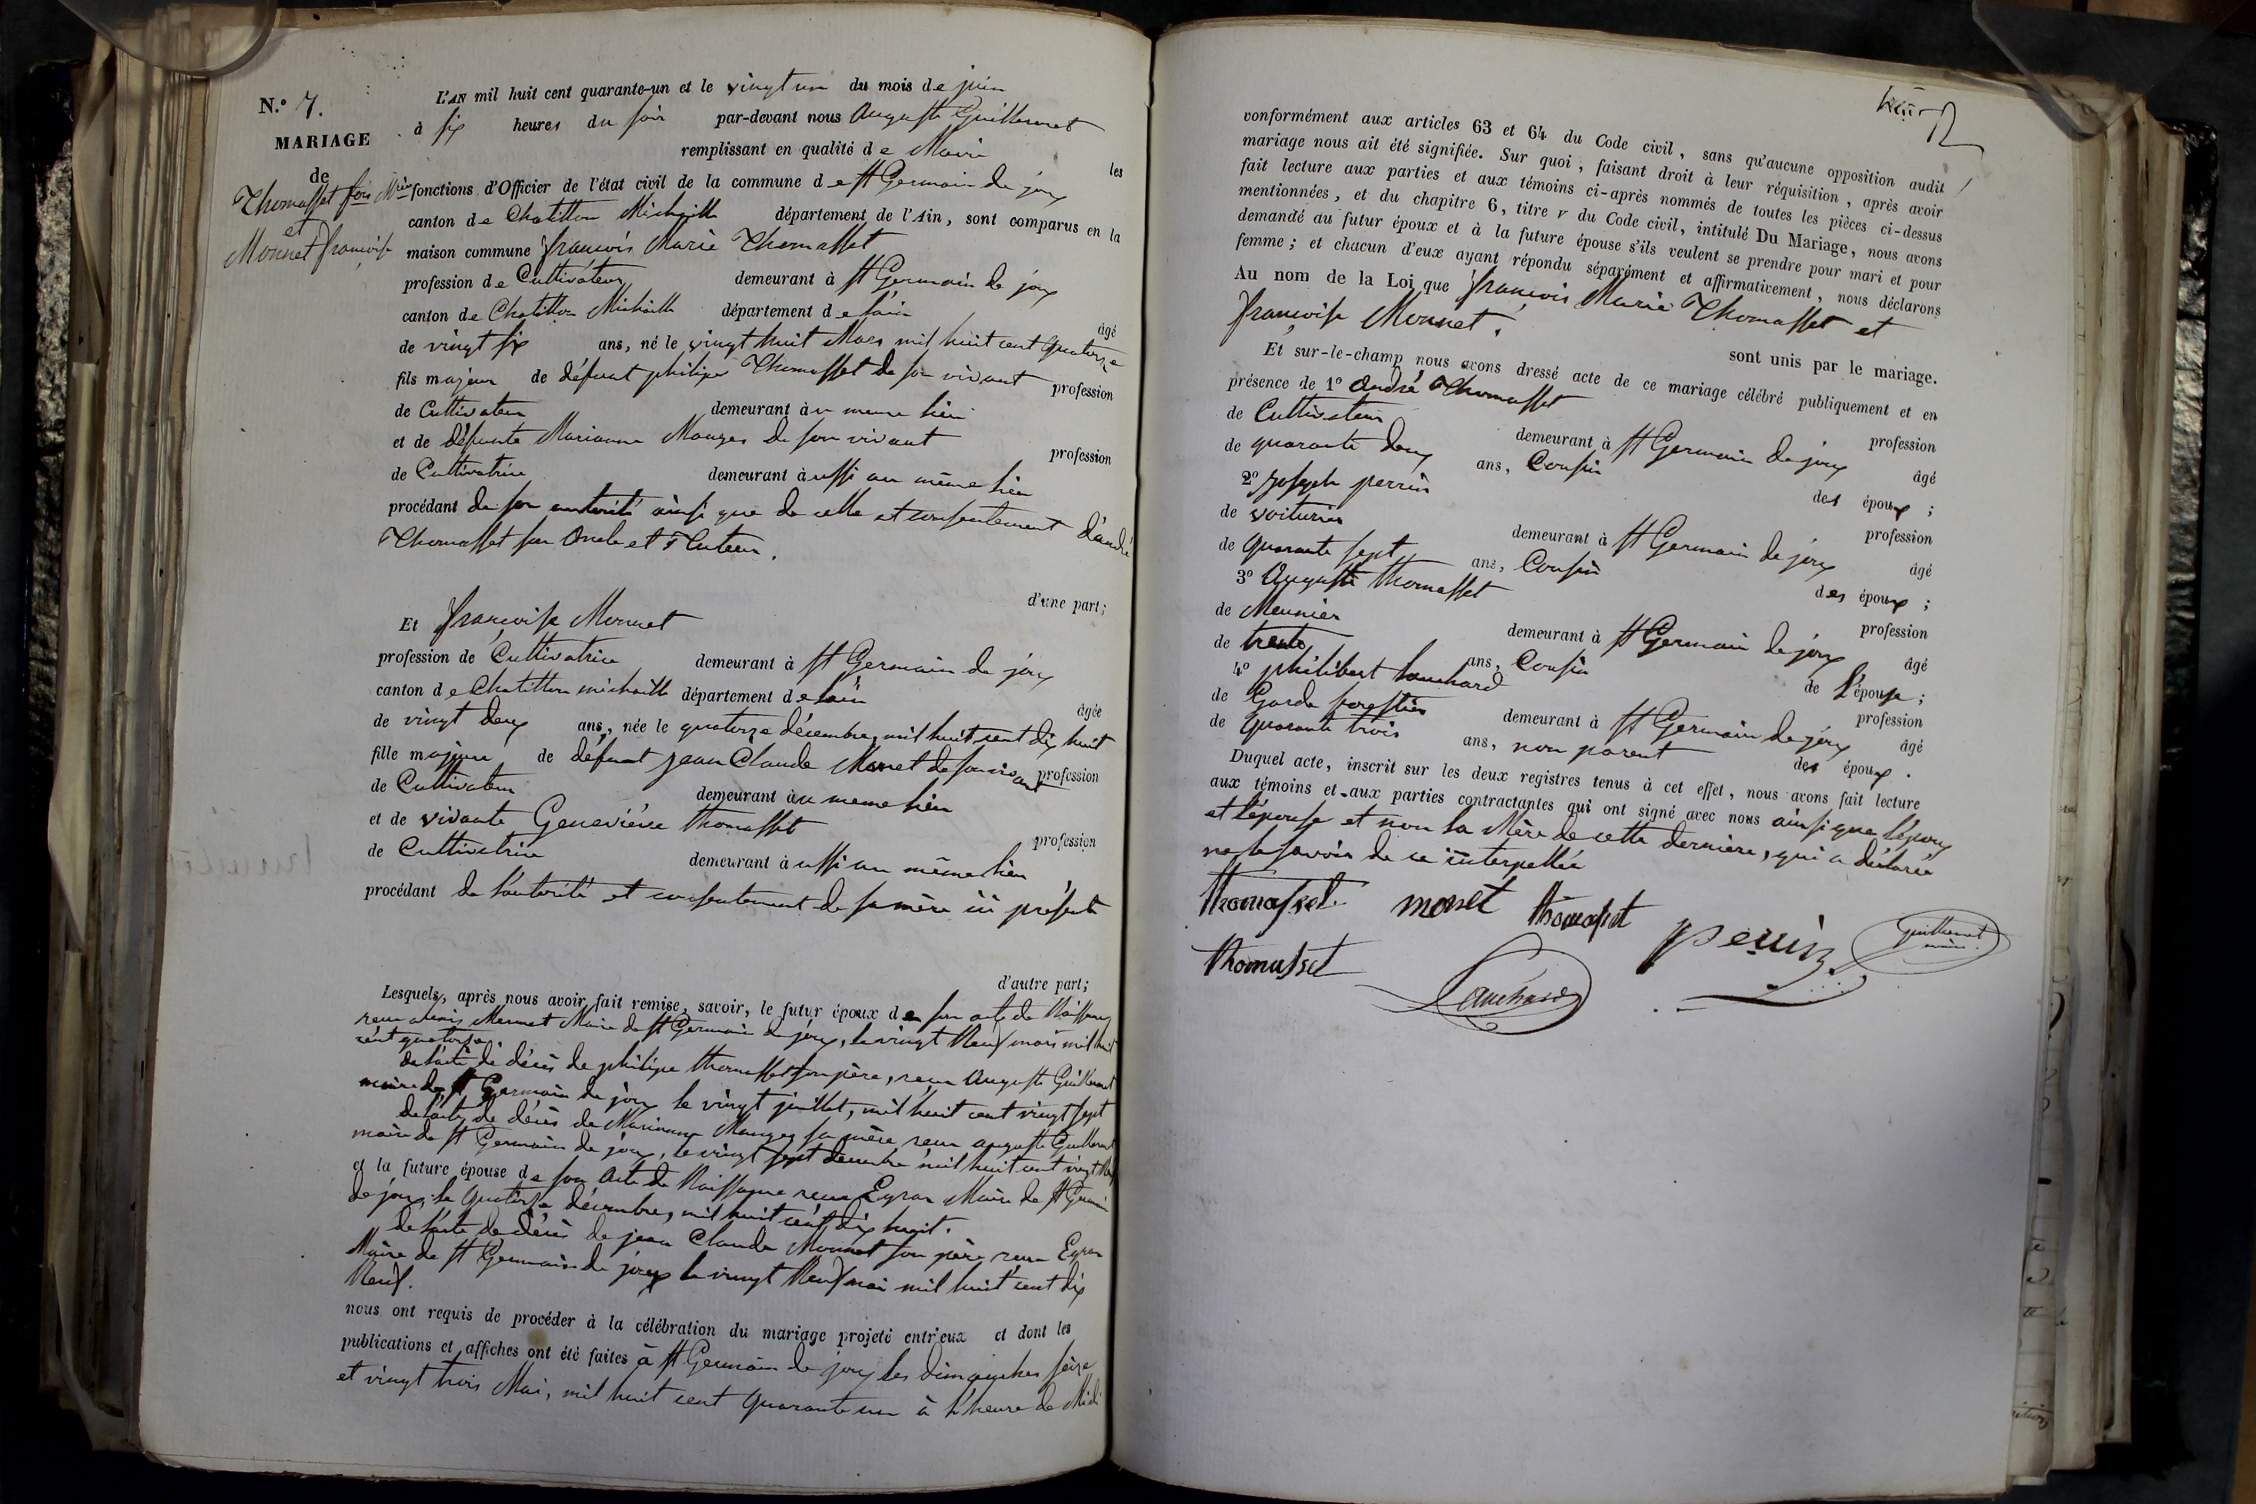 N.° 7.
MARIAGE
de
Thomasset fois Mrie
et
Monnet françoise
L'AN mil huit cent quarante-un et le vingt un du mois de juin
à six heures du soir par-devant nous Auguste Guillermet
remplissant en qualité de Maire les
fonctions d'Officier de l'état civil de la commune de St Germain de joux
canton de Chatillon Michaille département de l'Ain, sont comparus en la
maison commune françois Marie Thomasset
profession de Cultivateur demeurant à St Germain de joux
canton de Chatillon Michaille département de l'ain âgé
de vingt six ans, né le vingt huit Mars mil huit cent quatorze
fils majeur de défunt philipe Thomasset de son vivant profession
de Cultivateur demeurant au meme lieu
et de défunte Marianne de son vivant profession
de Cultivatrice demeurant aussi au même lieu
procédant de son autorité ainsi que de celle et consentement d'andré
Thomasset son Oncle et Tuteur.
d'une part;
Et françoise Monnet
profession de Cultivatrice demeurant à St Germain de joux
canton de Chatillon michaille département de l'ain âgée
de vingt deux ans, née le quatorze décembre, mil huit cent dix huit
fille majeure de défunt jean Claude Monet de son vivant profession
de Cultivateur demeurant au meme lieu
et de vivante Geneviève thomasset profession
de Cultivatrice demeurant aussi au même lieu
procédant de l'autorité et consentement de sa mère ici présente
d'autre part;
Lesquels, après nous avoir fait remise, savoir, le futur époux de son acte de Naissance
reçu Mermet Maire de St Germain de joux, le vingt Neuf mars mil huit
cent quatorze
de l'acte de décès de philipe thomasset son père, reçu Auguste Guillermet
maire de St Germain de joux le vingt juillet, mil huit cent vingt sept
de l'acte de décès de Marianne sa mère reçu auguste Guillermet
maire de St Germain de joux, le vingt sept mil huit cent vingt
et la future épouse de son Acte de Naissance reçu Eyran Maire de St Germain
de joux le Quatorze décembre, mil huit cent dix huit.
de l'acte de décès de jean Claude Monnet son père reçu Eyran
Maire de St Germain de joux le vingt Neuf mai mil huit cent dix
Neuf.
nous ont requis de procéder à la célébration du mariage projeté entr'eux et dont les
publications et affiches ont été faites à St Germain de joux les dimanches seize
et vingt trois Mai, mil huit cent quarante un à l'heure de Midi
conformément aux articles 63 et 64 du Code civil, sans qu'aucune opposition audit
mariage nous ait été signifiée. Sur quoi, faisant droit à leur réquisition, après avoir
fait lecture aux parties et aux témoins ci-après nommés de toutes les pièces ci-dessus
mentionnées, et du chapitre 6, titre v du Code civil, intitulé Du Mariage, nous avons
demandé au futur époux et à la future épouse s'ils veulent se prendre pour mari et pour
femme; et chacun d'eux ayant répondu séparément et affirmativement, nous déclarons
Au nom de la Loi que françois Marie Thomasset et
françoise Monnet.
sont unis par le mariage.
Et sur-le-champ nous avons dressé acte de ce mariage célébré publiquement et en
présence de 1° André Thomasset profession
de Cultivateur demeurant à St Germain de joux âgé
de quarante deux ans, Cousin des époux;
2° Joseph perrin profession
de voiturier demeurant à St Germain de joux âgé
de Quarante sept ans, Cousin des époux;
3° Auguste thomasset profession
de Meunier demeurant à St Germain de joux âgé
de trente ans, Cousin de l'épouse;
4° philibert Louchard profession
de Garde forestier demeurant à St Germain de joux âgé
de quarante trois ans, non parent des époux.
Duquel acte, inscrit sur les deux registres tenus à cet effet, nous avons fait lecture
aux témoins et aux parties contractantes qui ont signé avec nous ainsi que l'époux
et l'épouse et non la Mère de cette dernière, qui a déclaré
ne le savoir de ce interpellée
thomasset monet thomasset perrin Guillermet
maire.
thomasset